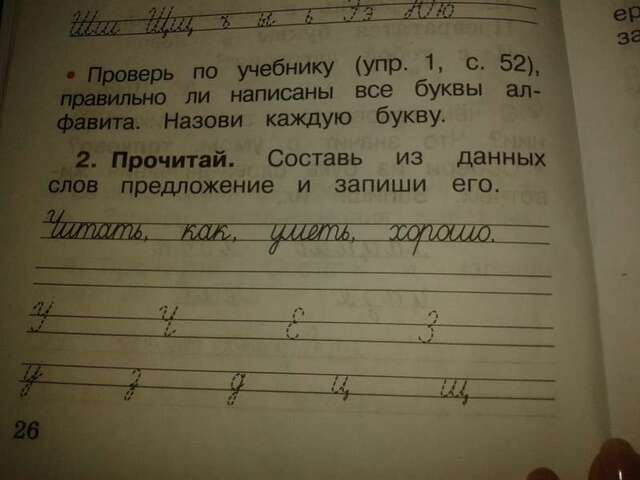 Шш Щщ ъ ы ь Ээ Юю
• Проверь по учебнику (упр. 1, с. 52),
правильно ли написаны все буквы ал-
фавита. Назови каждую букву.
2. Прочитай. Составь из данных
слов предложение и запиши его.
Читать, как, уметь, хорошо.
У Ч Е З
у з д ц щ
26
ер
за